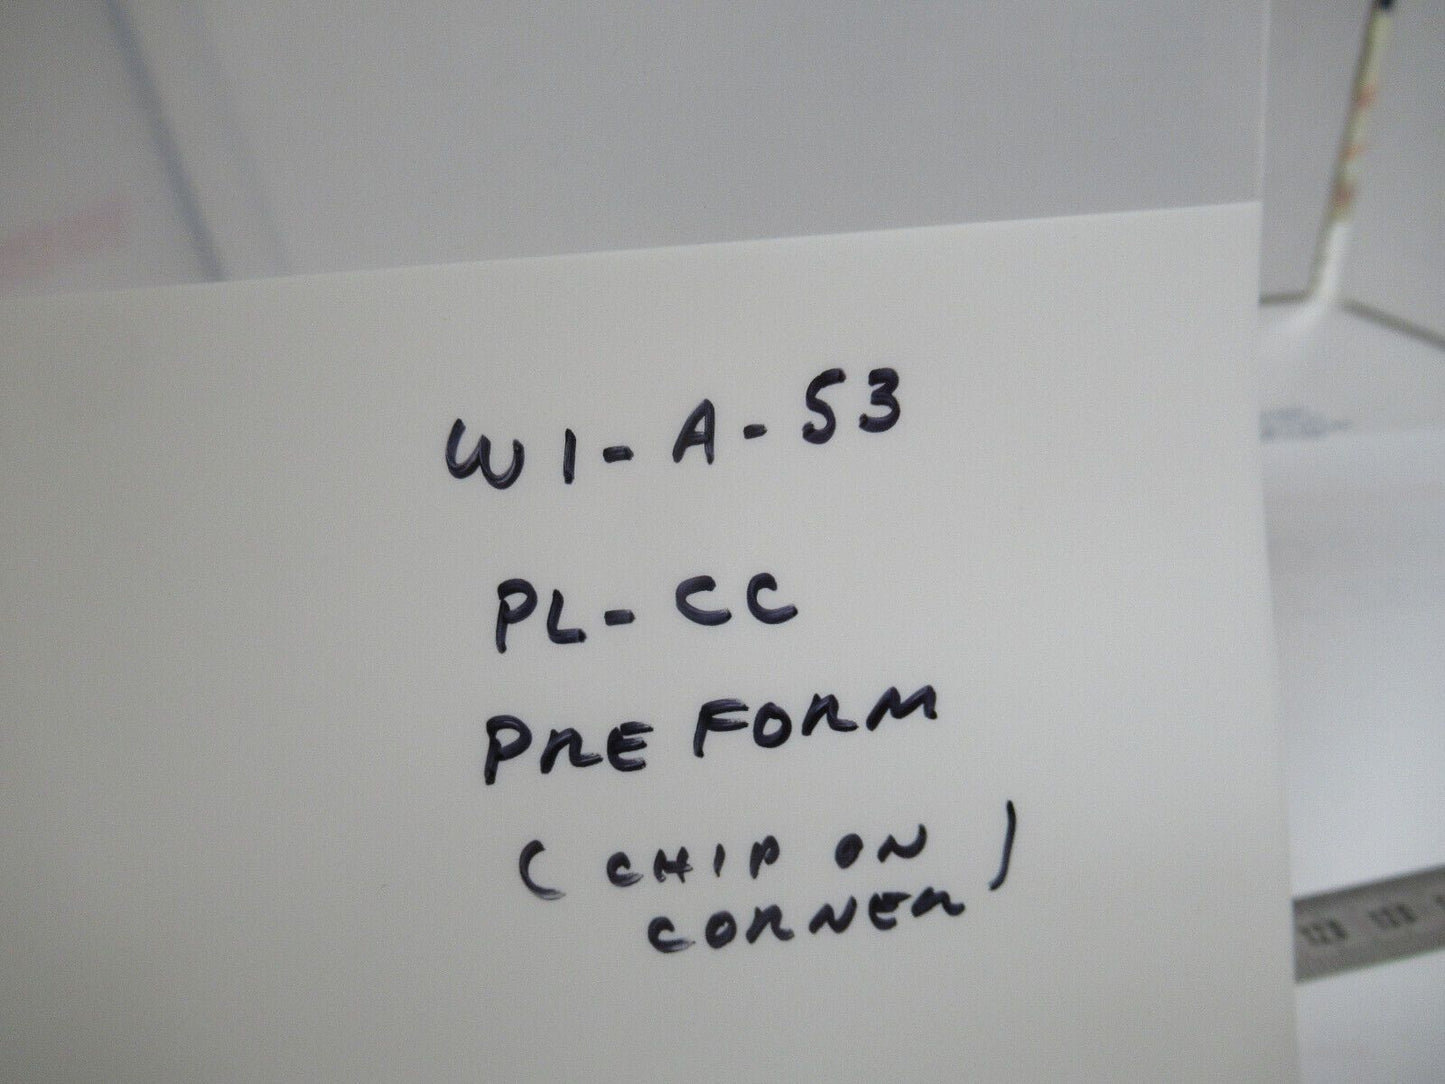 W1-A-53
PL-CC
PREFORM
(CHIP ON
CORNER)